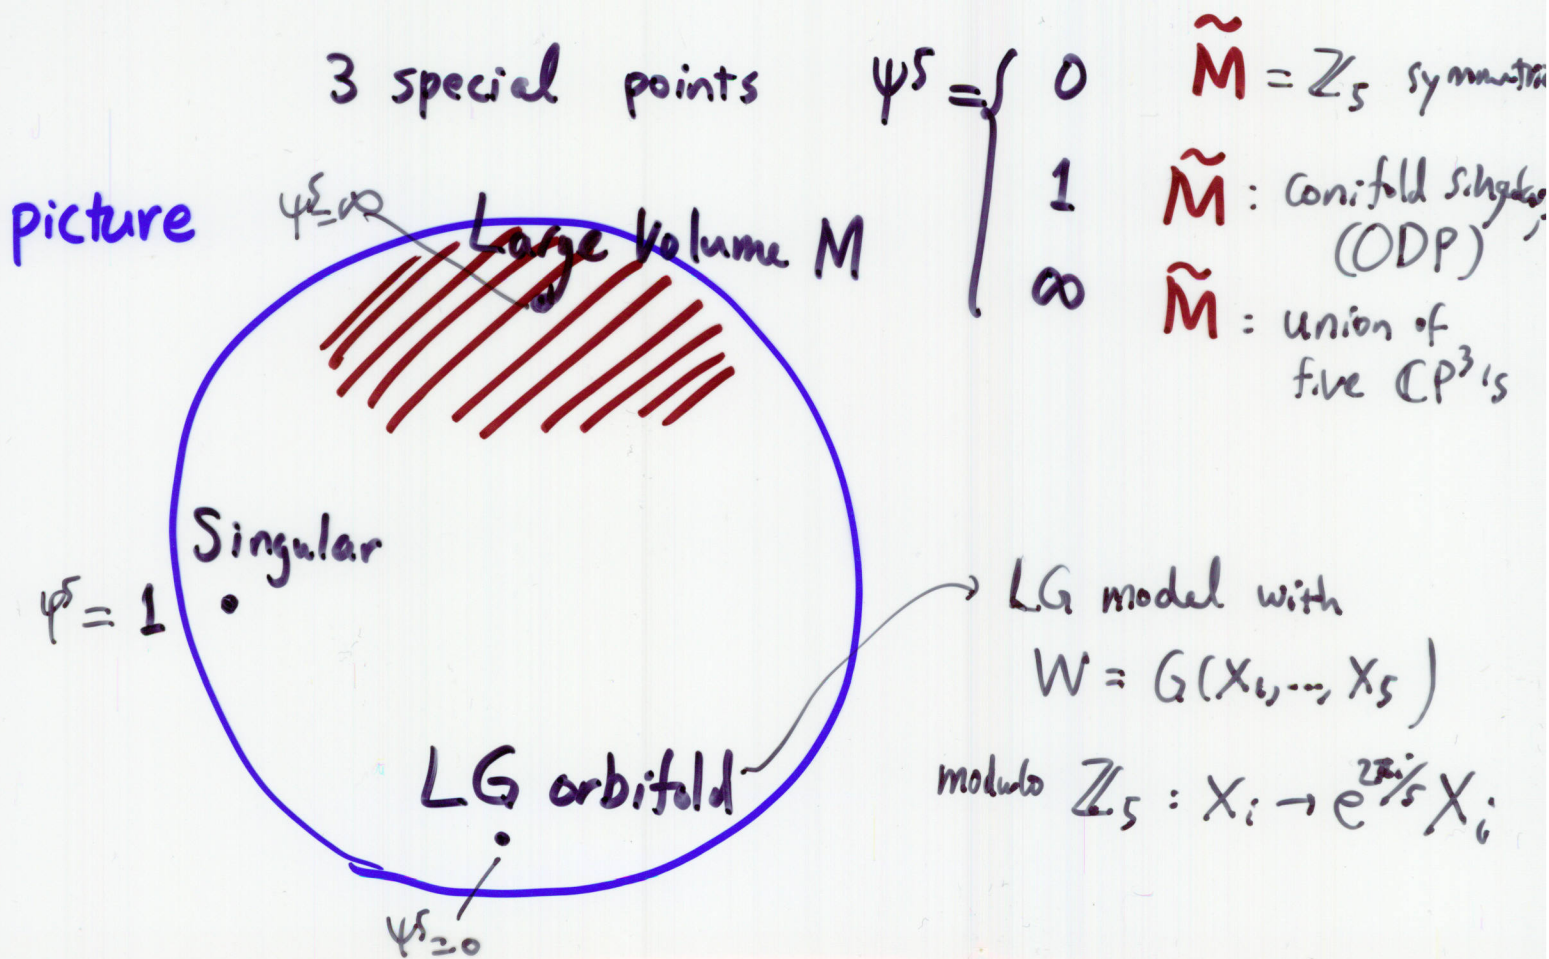 3 special points
ψ⁵ = { 0 M̃ = ℤ₅ symmetric
1 M̃ : conifold singular,
(ODP)
∞ M̃ : union of
five ℂP³'s
picture
ψ⁵=∞
Large Volume M
Singular
ψ⁵ = 1
LG orbifold
ψ⁵=0
LG model with
W = G(X₁,..., X₅)
modulo ℤ₅ : Xᵢ → e^{2πi/5} Xᵢ